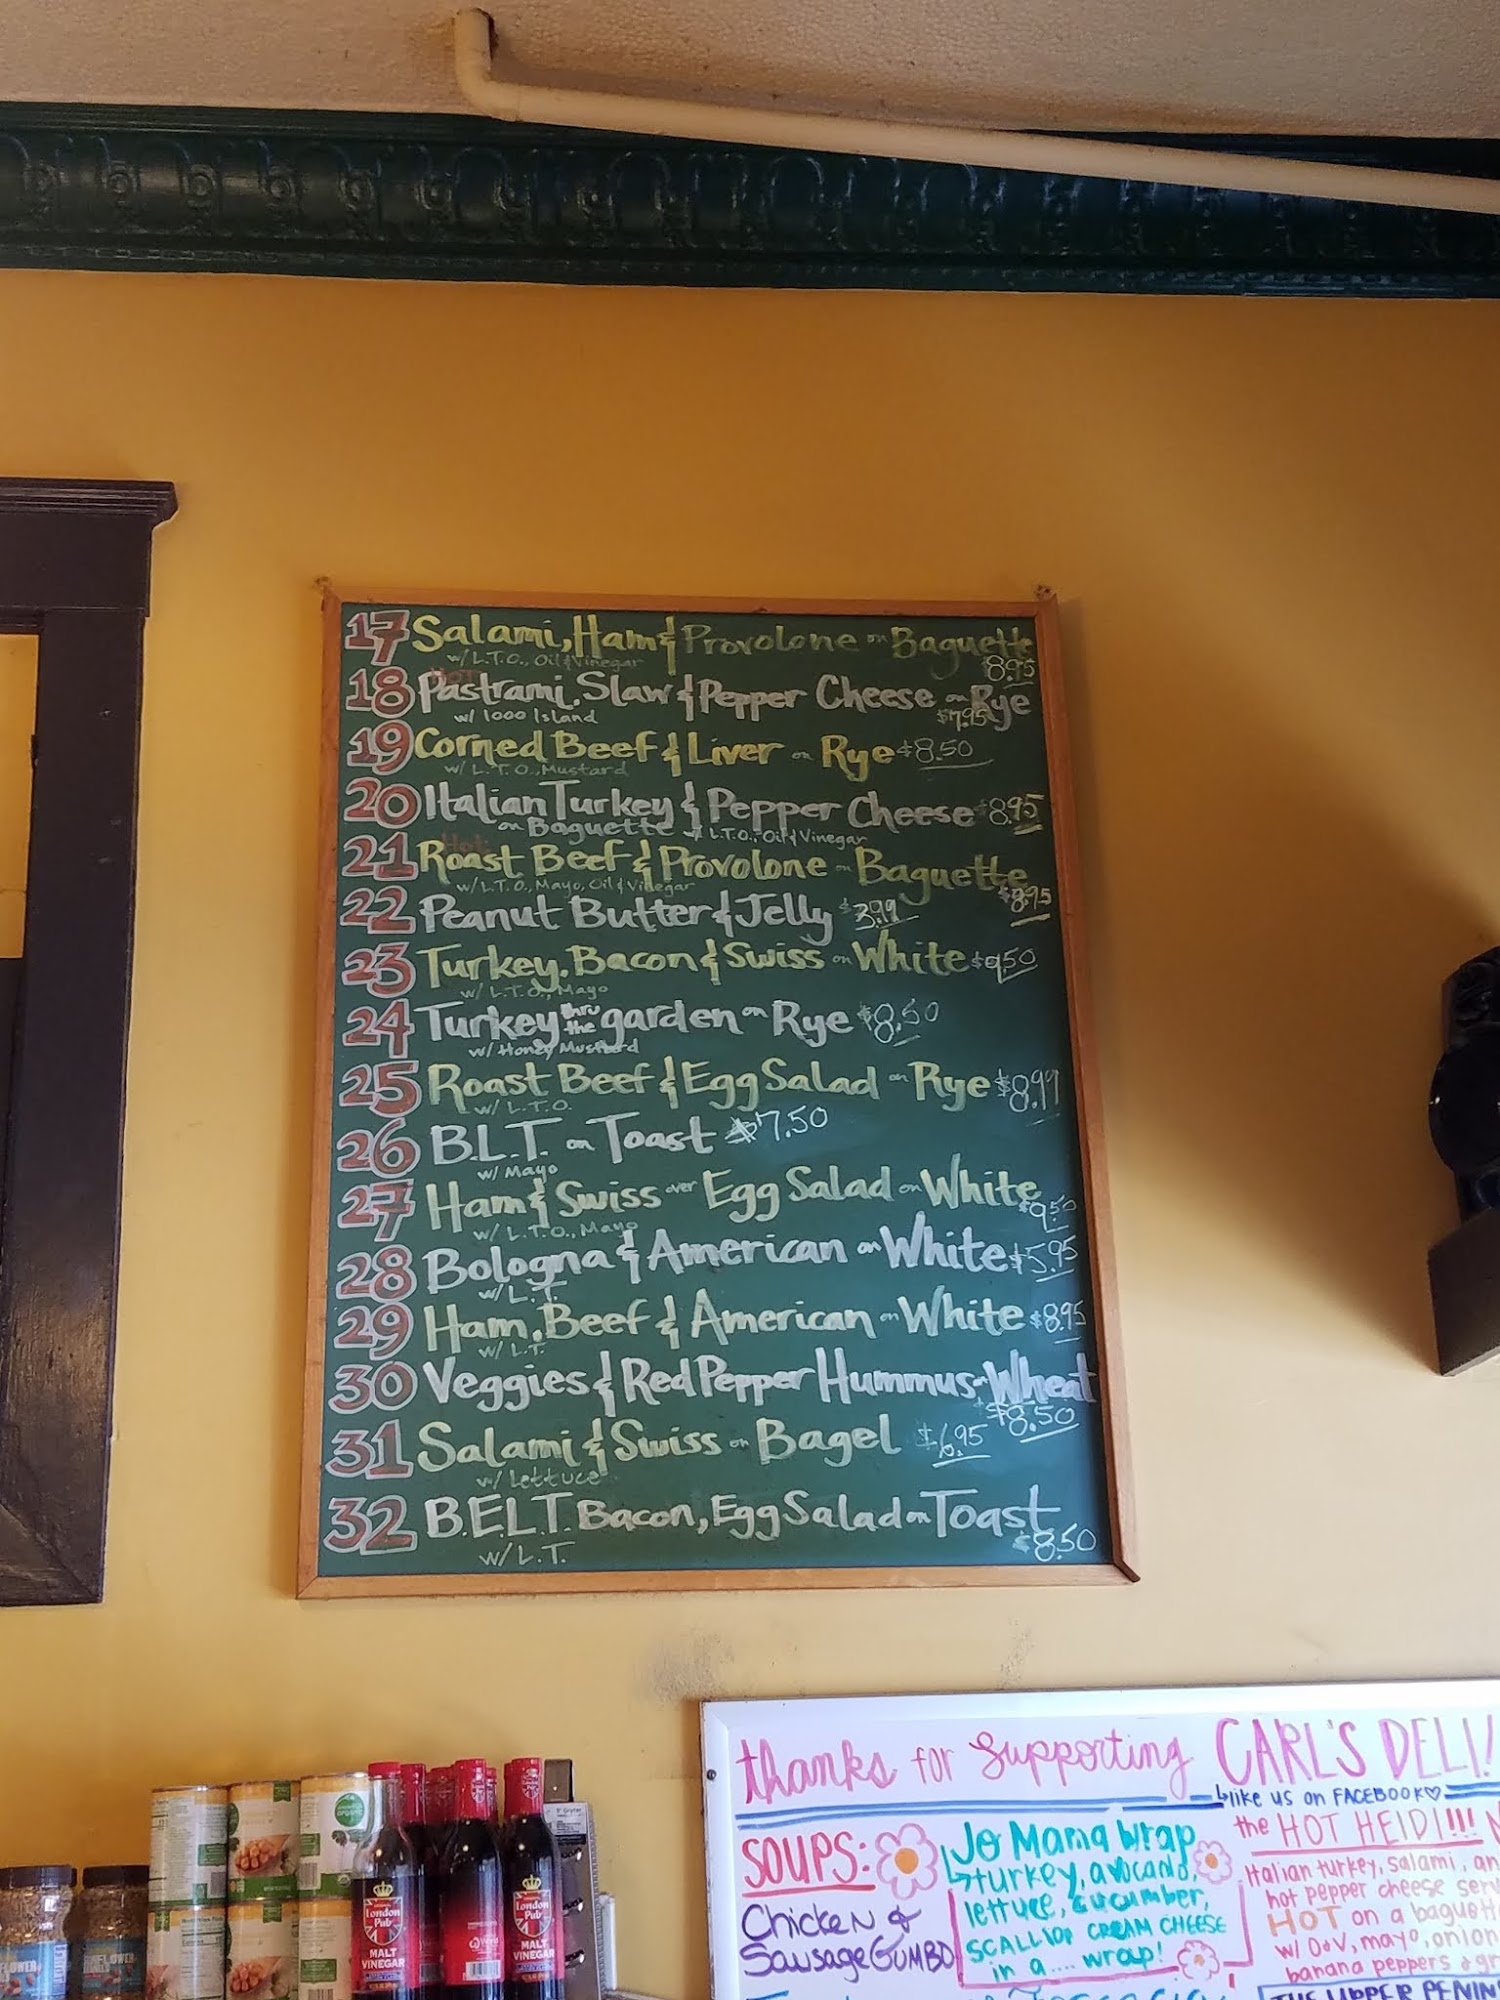 17 Salami, Ham & Provolone on Baguette
w/ L.T.O., Oil & Vinegar
8.95
Hot
18 Pastrami, Slaw & Pepper Cheese on Rye
w/ 1000 Island
$7.95
19 Corned Beef & Liver on Rye $8.50
w/ L.T.O., Mustard
20 Italian Turkey & Pepper Cheese $8.95
on Baguette w/ L.T.O., Oil & Vinegar
Hot
21 Roast Beef & Provolone on Baguette
w/ L.T.O., Mayo, Oil & Vinegar
$8.95
22 Peanut Butter & Jelly $3.99
23 Turkey, Bacon & Swiss on White $9.50
w/ L.T.O., Mayo
24 Turkey thru the garden on Rye $8.50
w/ Honey Mustard
25 Roast Beef & Egg Salad on Rye $8.99
w/ L.T.O.
26 B.L.T. on Toast $7.50
w/ Mayo
27 Ham & Swiss over Egg Salad on White
w/ L.T.O., Mayo
$9.50
28 Bologna & American on White $5.95
w/ L.T.
29 Ham, Beef & American on White $8.95
w/ L.T.
30 Veggies & Red Pepper Hummus on Wheat
$8.50
31 Salami & Swiss on Bagel $6.95
w/ Lettuce
32 B.E.L.T. Bacon, Egg Salad on Toast
w/ L.T.
$8.50
thanks for supporting CARL'S DELI!
like us on FACEBOOK
SOUPS:
Chicken &
Sausage GUMBO
Jo Mama Wrap
turkey, avocado,
lettuce, cucumber,
SCALLION CREAM CHEESE
in a.... wrap!
the HOT HEIDI!!!
Italian turkey, salami, an
hot pepper cheese serv
HOT on a baguett
w/ O&V, mayo, onion
banana peppers & gr
THE UPPER PENIN
London
Pub
MALT
VINEGAR
London
Pub
MALT
VINEGAR